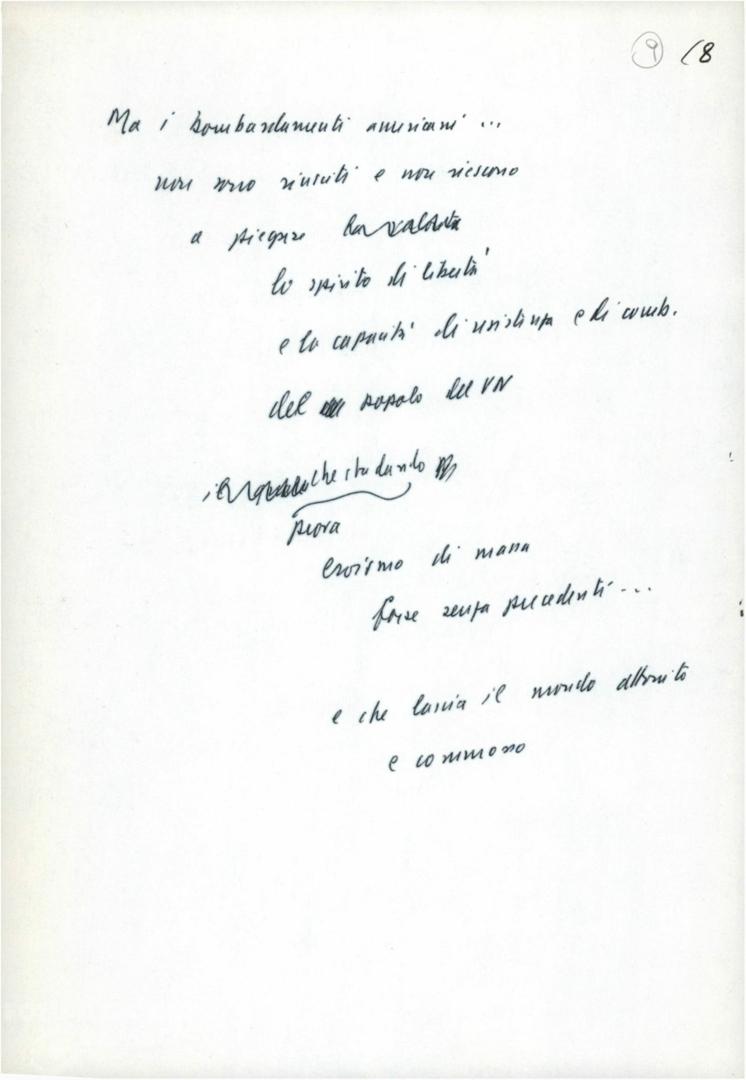 9 18
Ma i bombardamenti americani ...
non sono riusciti e non riescono
a piegare la
lo spirito di libertà
e la capacità di resistenza e di comb.
del popolo del VN
il che sta dando
prova
eroismo di massa
forse senza precedenti ...
e che lascia il mondo attonito
e commosso